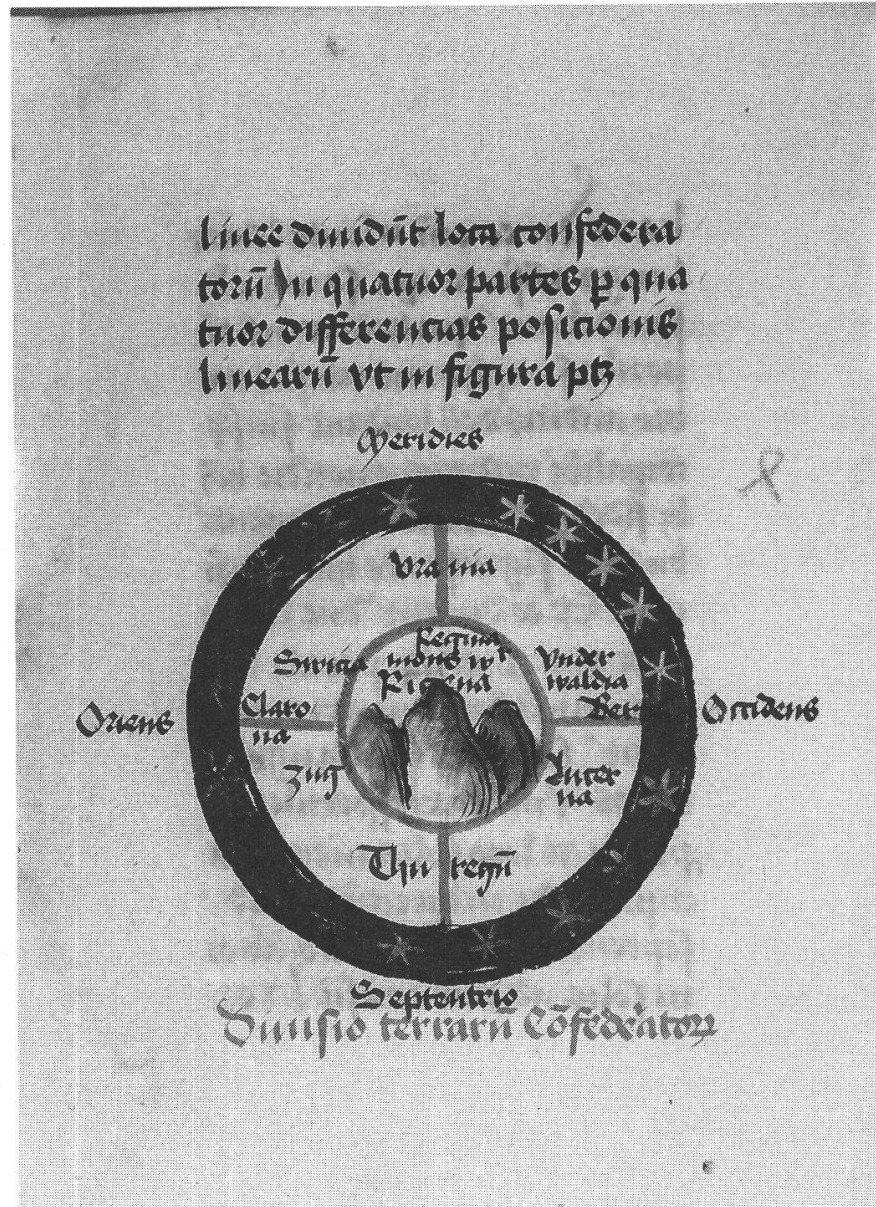 linee diuidūt loca confedera
torū Jn quatuor partes ꝑ qua
tuor differencias posicionis
linearū vt in figura ptꝫ
Meridies
Vrania
Regina
mons
Rigena
Swicia
Vnder
waldia
Oriens
Claro
na
Bern
Occidens
Zug
Lucer
na
Thuregū
Septentrio
Diuisio terrarū Cōfederatoꝝ